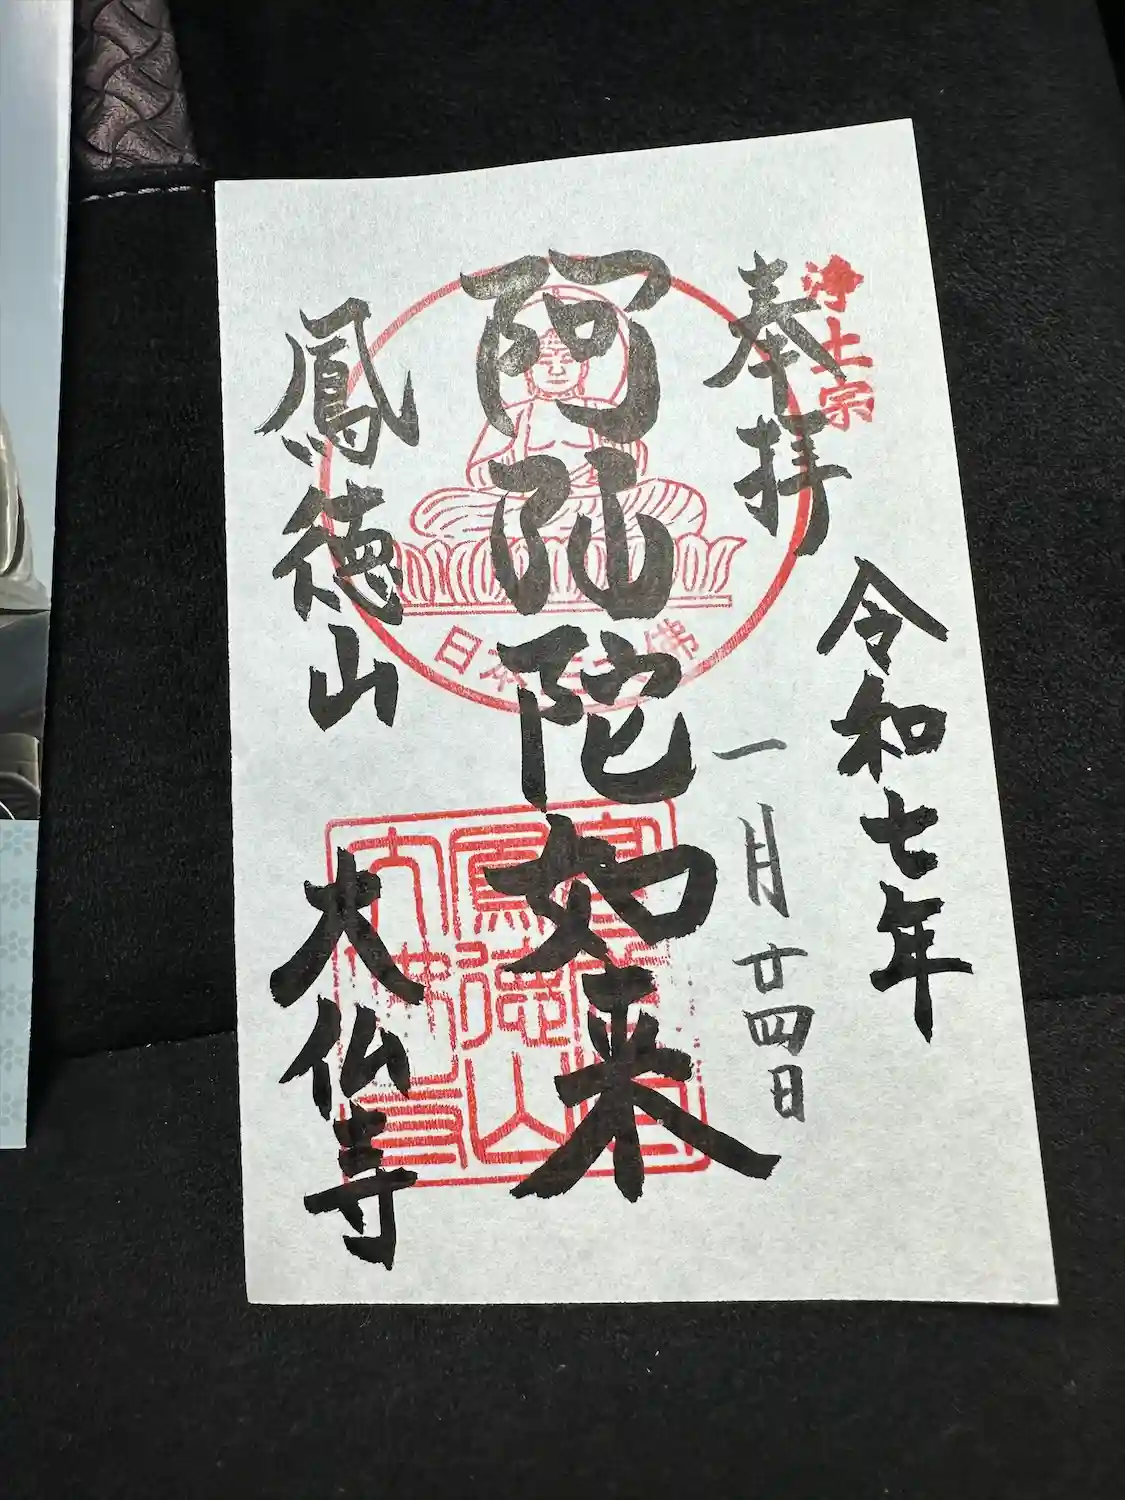 浄土宗
奉拝
令和七年
一月廿四日
阿弥陀如来
鳳徳山
大仏寺